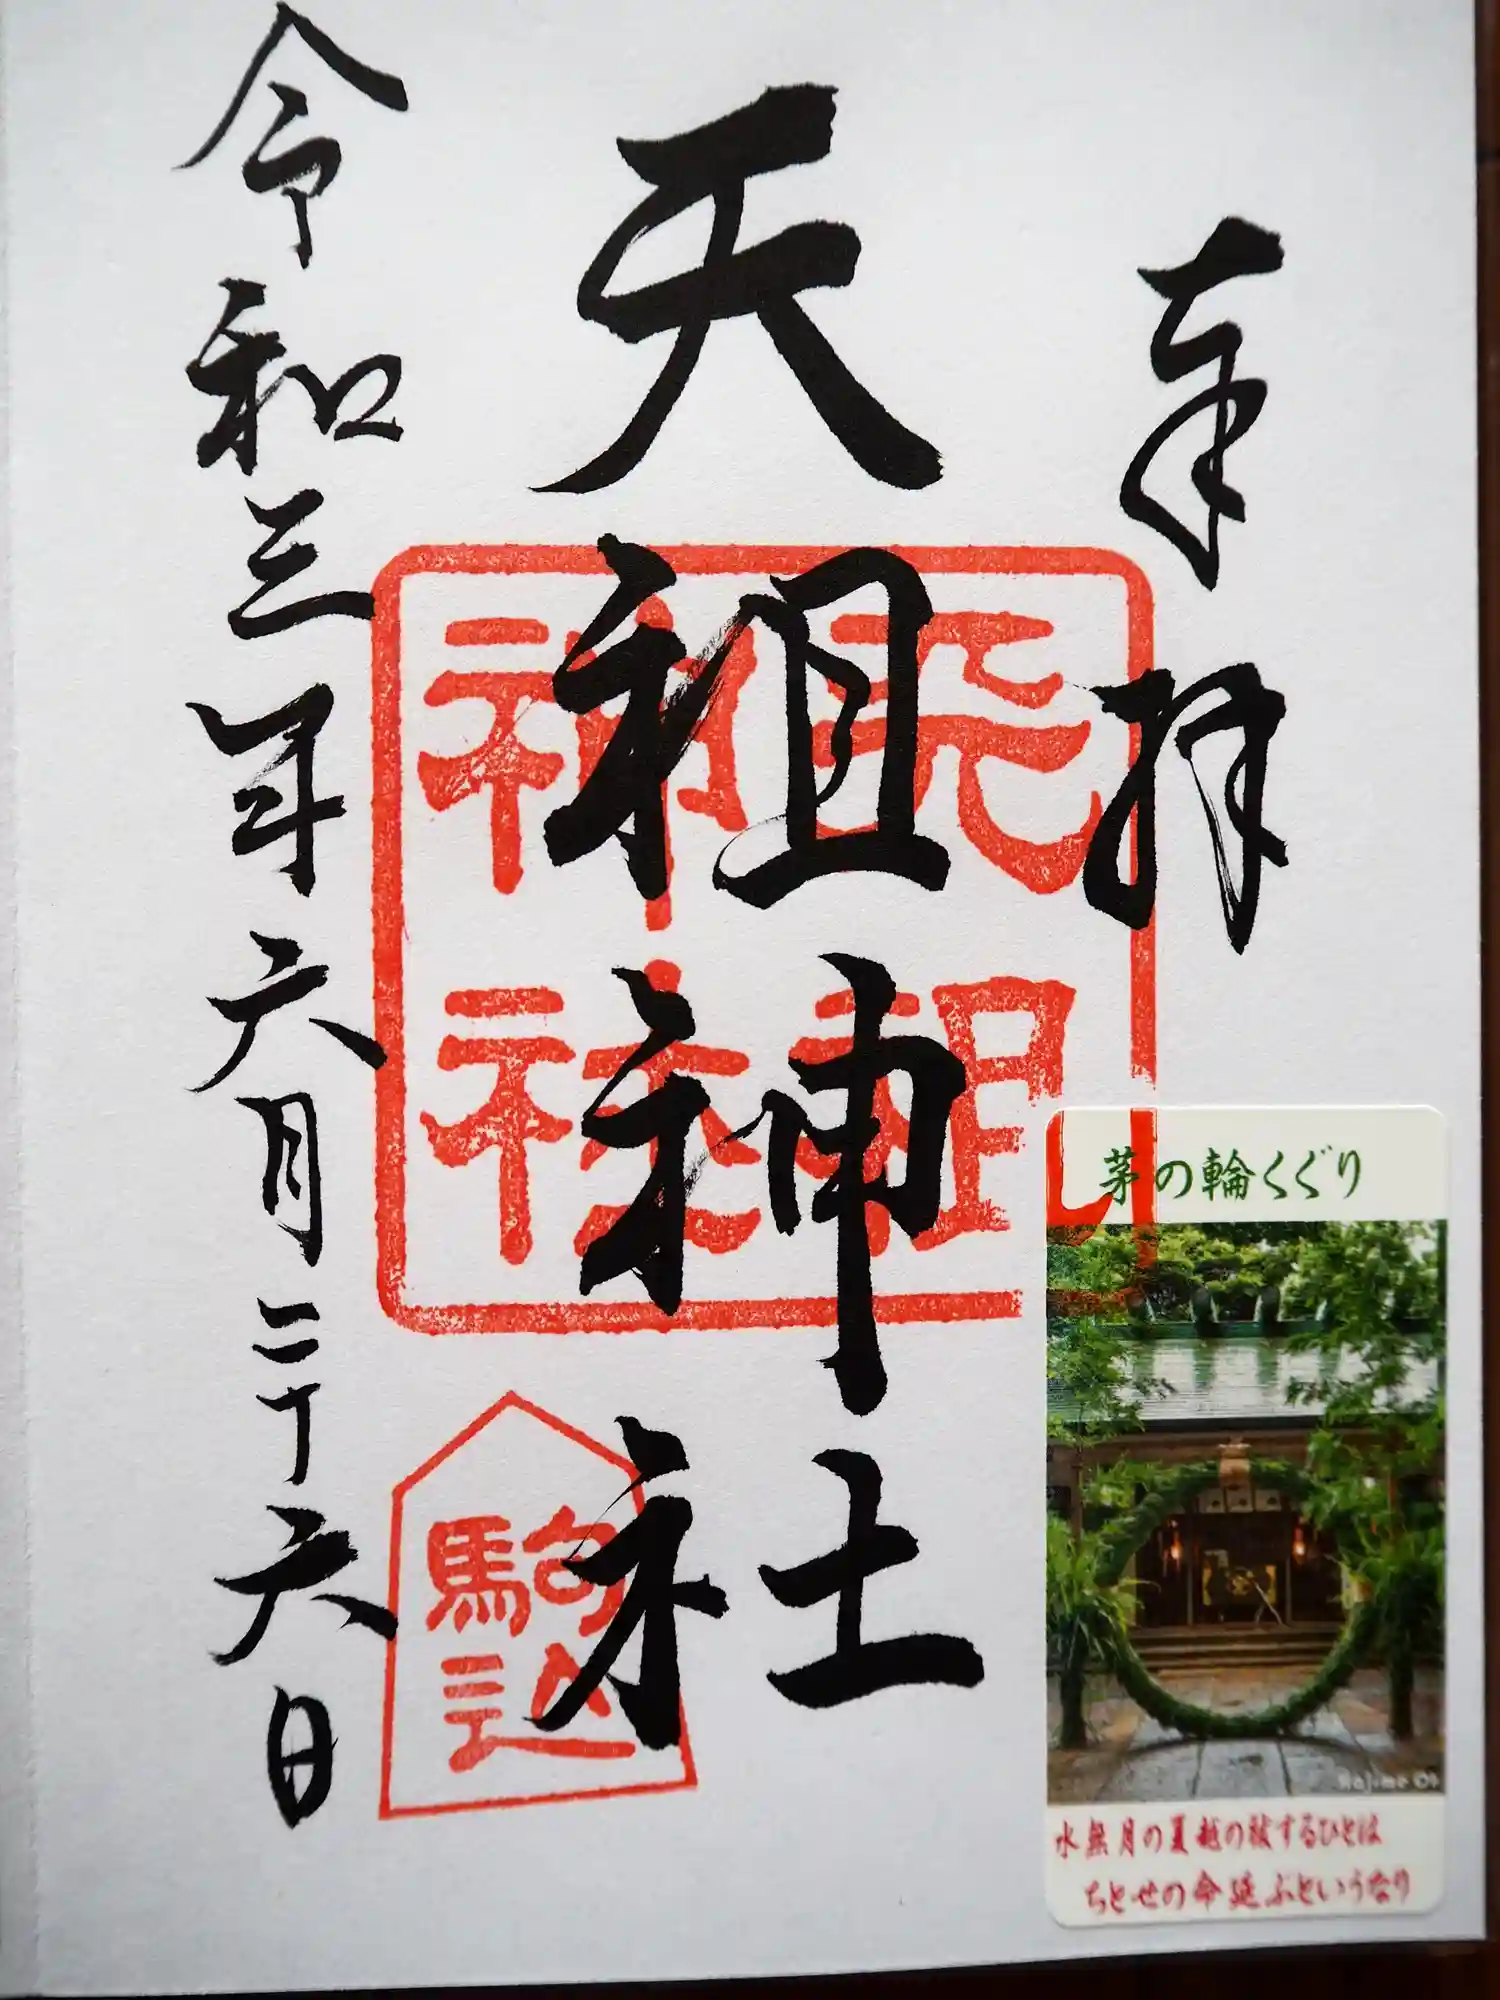 奉拝
天祖神社
令和三年六月二十六日
天祖
神社
駒込
茅の輪くぐり
水無月の夏越の祓するひとは
ちとせの命延ぶというなり